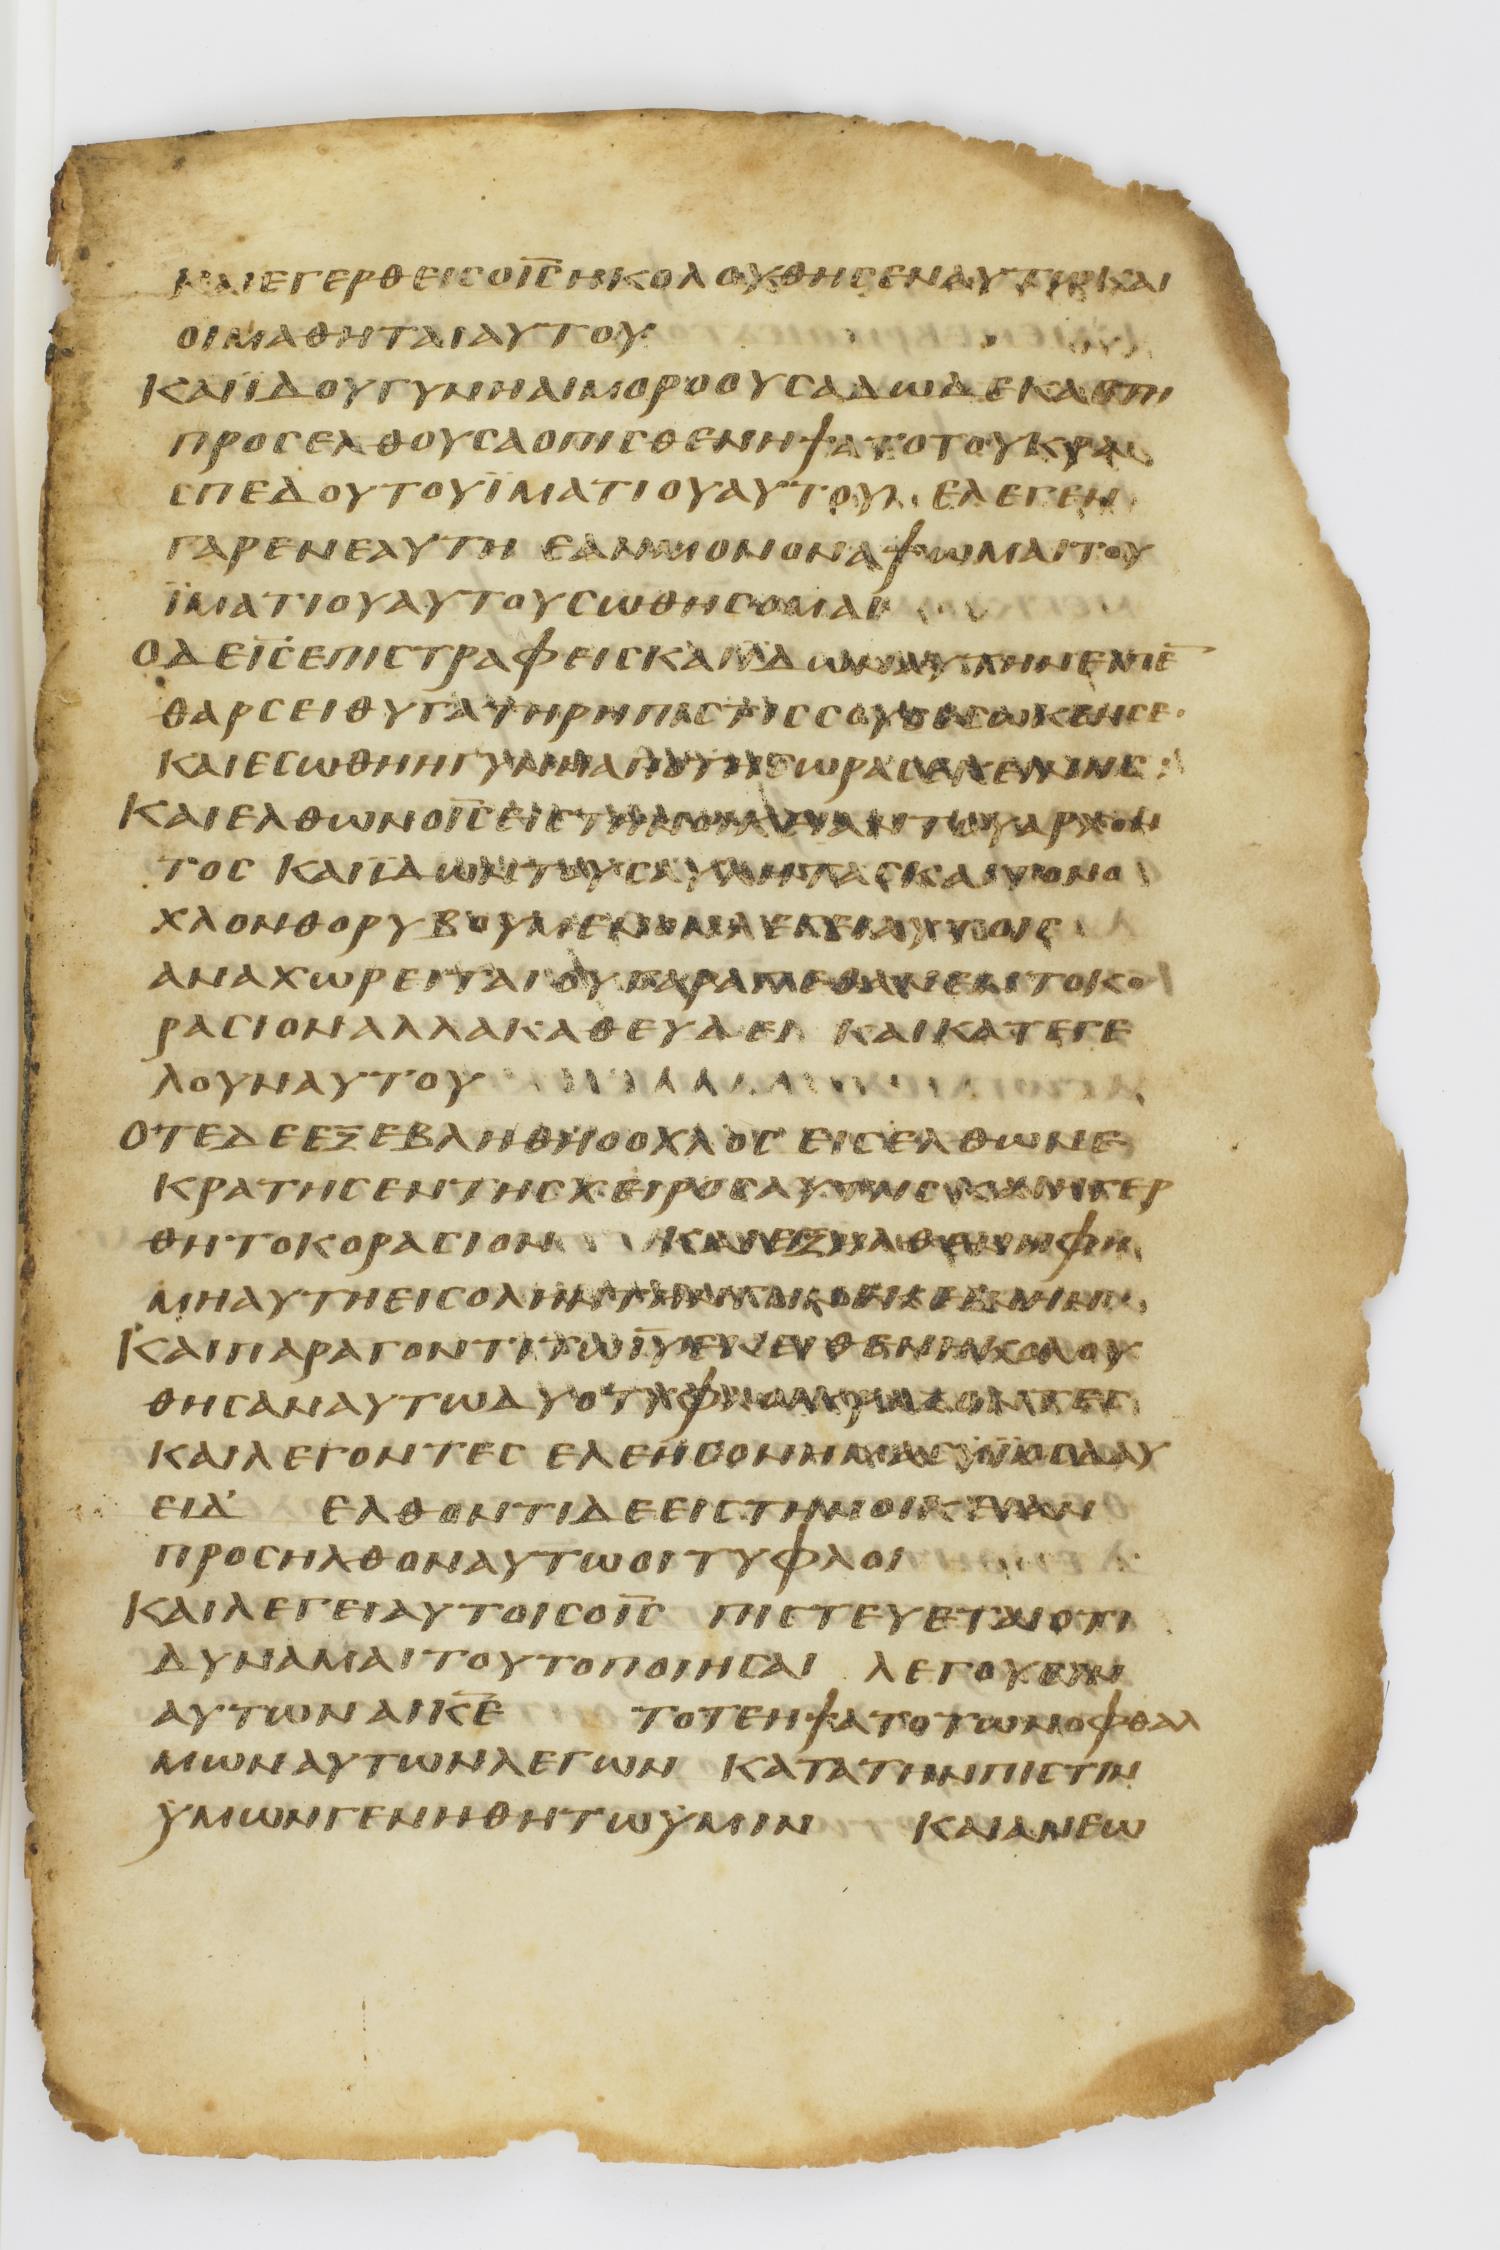 ΚΑΙΕΓΕΡΘΕΙΣΟΙ̅Σ̅ΗΚΟΛΟΥΘΗΣΕΝΑΥΤΩΚΑΙ
ΟΙΜΑΘΗΤΑΙΑΥΤΟΥ
ΚΑΙΪΔΟΥΓΥΝΗΑΙΜΟΡΟΟΥΣΑΔΩΔΕΚΑΕΤΗ
ΠΡΟΣΕΛΘΟΥΣΑΟΠΙΣΘΕΝΗΨΑΤΟΤΟΥΚΡΑ
ΣΠΕΔΟΥΤΟΥΪΜΑΤΙΟΥΑΥΤΟΥ ΕΛΕΓΕΝ
ΓΑΡΕΝΕΑΥΤΗ ΕΑΝΜΟΝΟΝΑΨΩΜΑΙΤΟΥ
ΪΜΑΤΙΟΥΑΥΤΟΥΣΩΘΗΣΟΜΑΙ
ΟΔΕΙ̅Σ̅ΕΠΙΣΤΡΑΦΕΙΣΚΑΙΪΔΩΝΑΥΤΗΝΕΙΠΕ̅
ΘΑΡΣΕΙΘΥΓΑΤΗΡΗΠΙΣΤΙΣΣΟΥΣΕΣΩΚΕΝΣΕ
ΚΑΙΕΣΩΘΗΗΓΥΝΗΑΠΟΤΗΣΩΡΑΣΕΚΕΙΝΗΣ
ΚΑΙΕΛΘΩΝΟΙ̅Σ̅ΕΙΣΤΗΝΟΙΚΕΙΑΝΤΟΥΑΡΧΟΝ
ΤΟΣ ΚΑΙΪΔΩΝΤΟΥΣΑΥΛΗΤΑΣΚΑΙΤΟΝΟ
ΧΛΟΝΘΟΡΥΒΟΥΜΕΝΟΝΛΕΓΕΙΑΥΤΟΙΣ
ΑΝΑΧΩΡΕΙΤΑΙΟΥΓΑΡΑΠΕΘΑΝΕΝΤΟΚΟ
ΡΑΣΙΟΝΑΛΛΑΚΑΘΕΥΔΕΙ ΚΑΙΚΑΤΕΓΕ
ΛΟΥΝΑΥΤΟΥ
ΟΤΕΔΕΕΞΕΒΛΗΘΗΟΟΧΛΟΣ ΕΙΣΕΛΘΩΝΕ
ΚΡΑΤΗΣΕΝΤΗΣΧΕΙΡΟΣΑΥΤΗΣΚΑΙΗΓΕΡ
ΘΗΤΟΚΟΡΑΣΙΟΝ ΚΑΙΕΞΗΛΘΕΝΗΦΗ
ΜΗΑΥΤΗΕΙΣΟΛΗΝΤΗΝΓΗΝΕΚΕΙΝΗΝ
ΚΑΙΠΑΡΑΓΟΝΤΙΤΩΙ̅Υ̅ΕΚΕΙΘΕΝΗΚΟΛΟΥ
ΘΗΣΑΝΑΥΤΩΔΥΟΤΥΦΛΟΙΚΡΑΖΟΝΤΕΣ
ΚΑΙΛΕΓΟΝΤΕΣ ΕΛΕΗΣΟΝΗΜΑΣΫΙΟΣΔΑΥ
ΕΙΔ ΕΛΘΟΝΤΙΔΕΕΙΣΤΗΝΟΙΚΕΙΑΝ
ΠΡΟΣΗΛΘΟΝΑΥΤΩΟΙΤΥΦΛΟΙ
ΚΑΙΛΕΓΕΙΑΥΤΟΙΣΟΙ̅Σ̅ ΠΙΣΤΕΥΕΤΑΙΟΤΙ
ΔΥΝΑΜΑΙΤΟΥΤΟΠΟΙΗΣΑΙ ΛΕΓΟΥΣΙΝ
ΑΥΤΩΝΑΙΚ̅Ε̅ ΤΟΤΕΗΨΑΤΟΤΩΝΟΦΘΑΛ
ΜΩΝΑΥΤΩΝΛΕΓΩΝ ΚΑΤΑΤΗΝΠΙΣΤΙΝ
ΫΜΩΝΓΕΝΗΘΗΤΩΫΜΙΝ ΚΑΙΑΝΕΩ